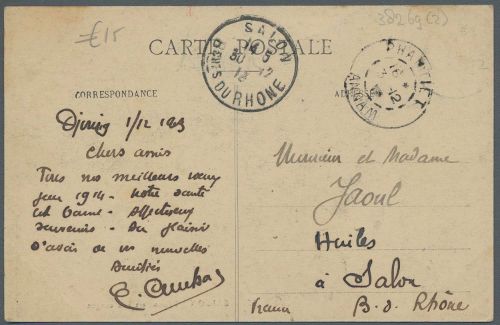 €15
38269(2)
CARTE POSTALE
SALON
BCHES DU RHONE
CORRESPONDANCE
1/12 1913
Chers amis
Tous nos meilleurs vœux
pour 1914 - Notre santé
est bonne - Affectueux
souvenirs - Au plaisir
d'avoir de vos nouvelles
Amitiés
Monsieur et Madame
Jaoul
Huiles
à Salon
B. d. Rhône
France